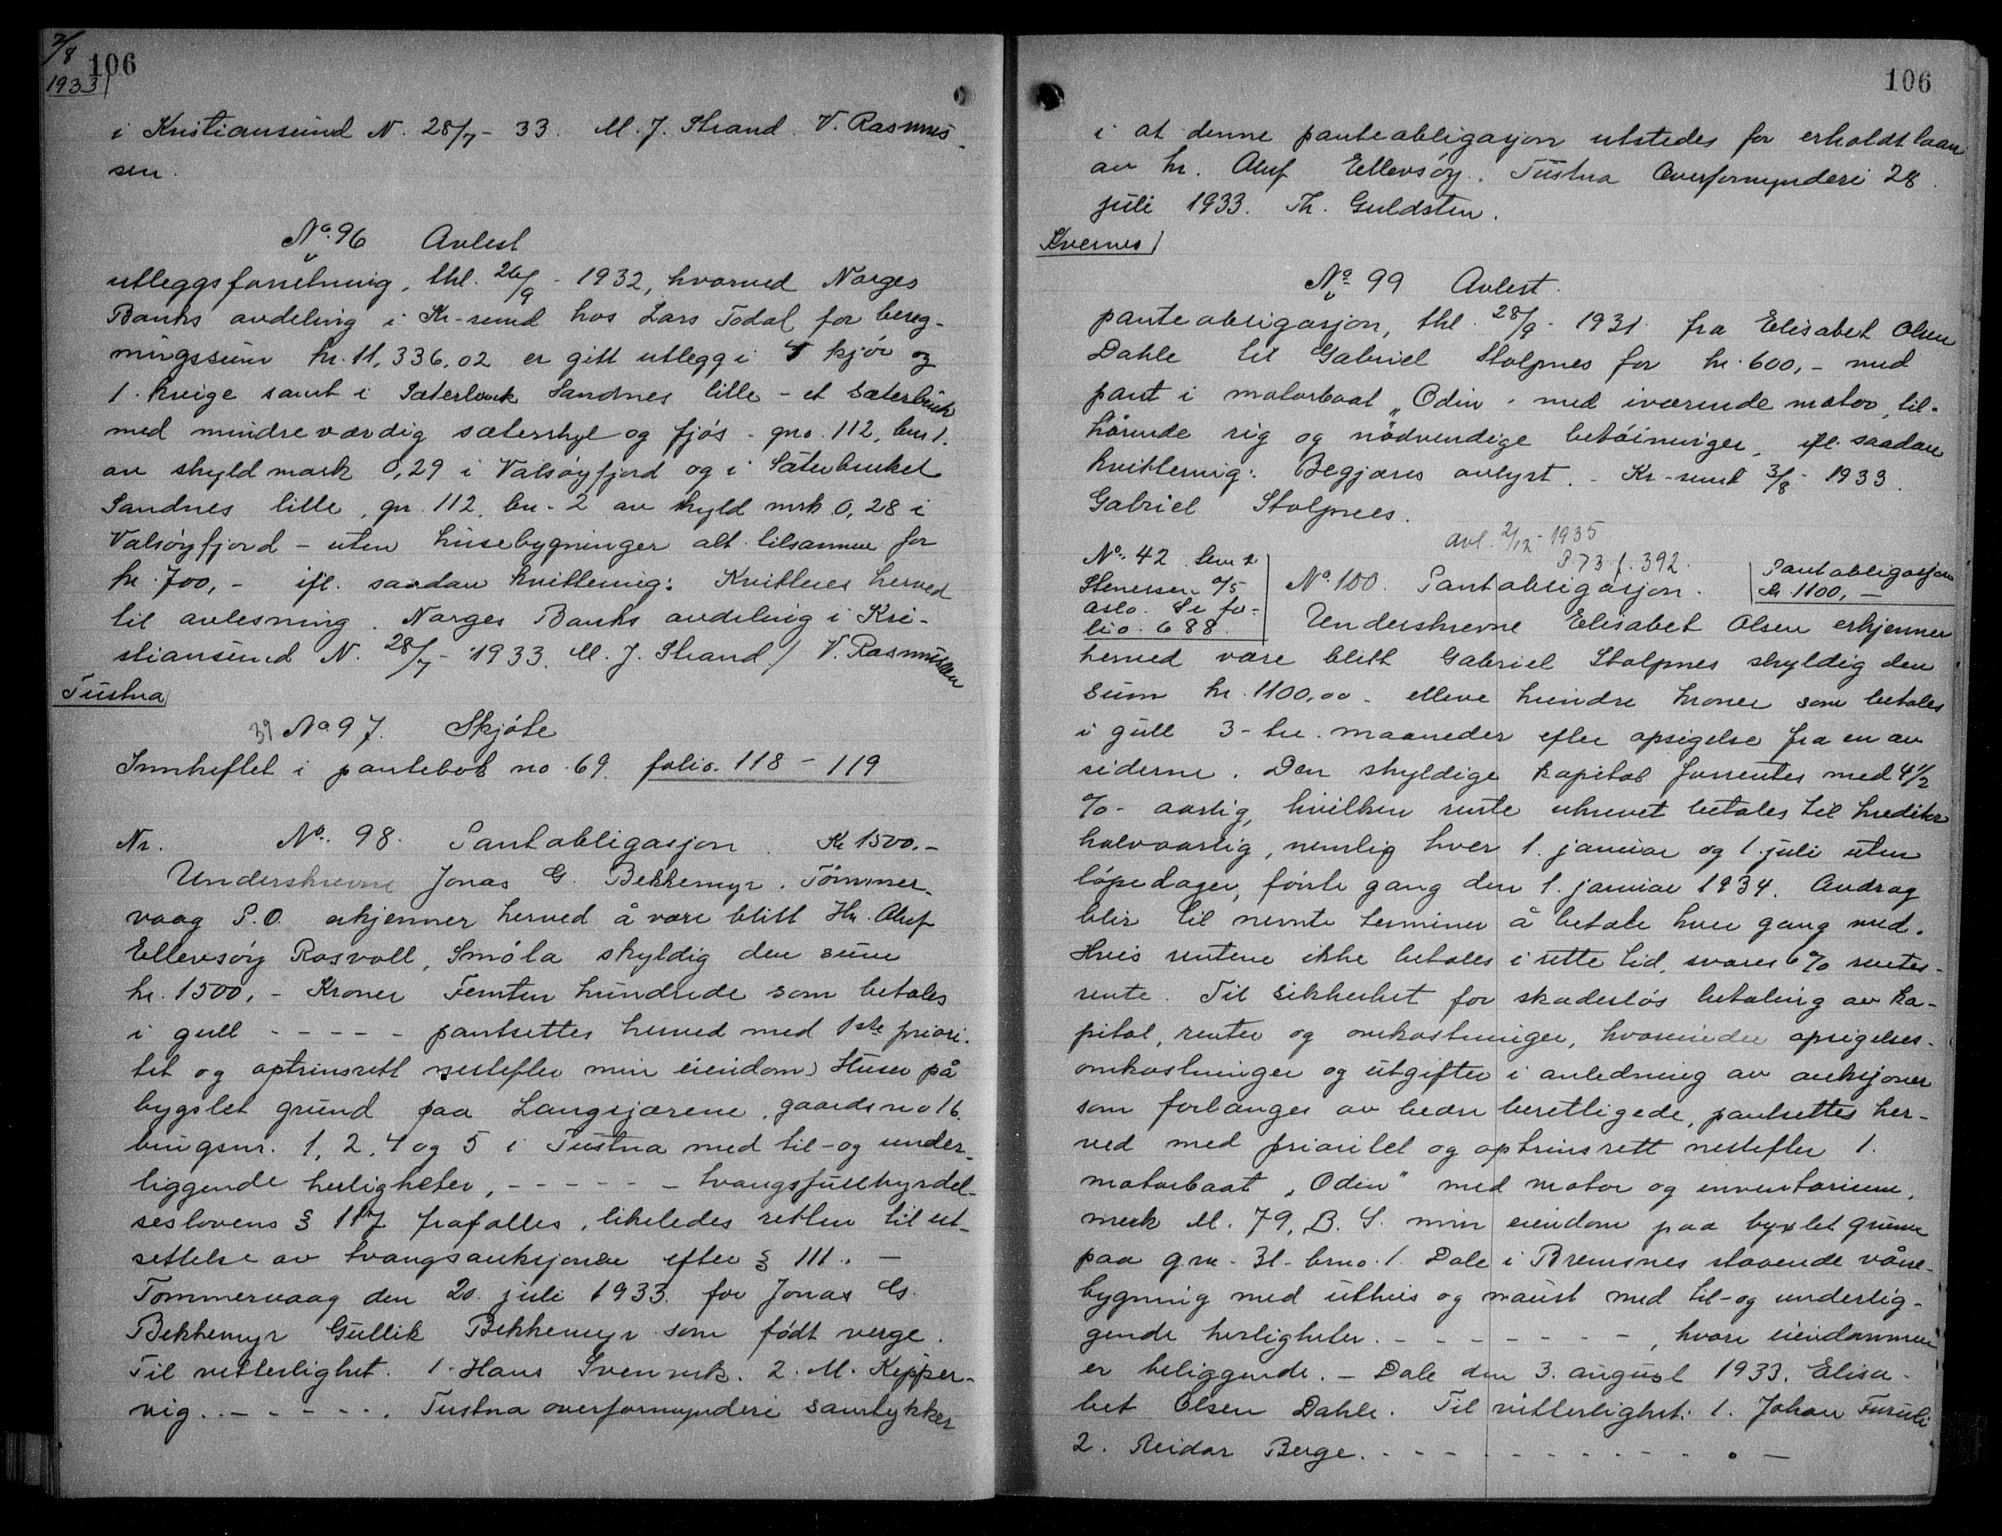 7/8
1933
106
i Kristiansund N. 28/7 - 33. M. J. Strand. V. Rasmus-
sen.
No. 96 Avlest
utleggsforretning, thl. 26/9 - 1932, hvorved Norges
Banks avdeling i Kr-sund hos Lars Todal for bereg-
ningssum kr. 11,336,02 er gitt utlegg i 4 kjör og
1. kvige samt i Sæterbruk Sandnes lille - et Sæterbruk
med mindreværdig sæterskyl og fjös - gno. 112, bno 1.
av skyld mark 0,29 i Valsöyfjord og i Säterbruket
Sandnes lille, gn. 112, bn - 2 av skyld mrk 0,28 i
Valsöyfjord - uten husebygninger alt tilsammen for
kr. 700,- ifl. saadan kvittering: Kvitteres herved
til avlesning. Norges Banks avdeling i Kri-
stiansund N. 28/7 - 1933. M. J. Strand / V. Rasmussen
Tustna
39 No 97. Skjöte
Innheftet i pantebok no. 69. folio. 118 - 119
Nr. No. 98. Pantobligasjon. Kr 1500.-
Underskrevne Jonas G. Bekkemyr. Tömmer-
vaag P.O. erkjenner herved å være blitt Hr. Oluf
Ellevsöy Rosvoll, Smöla skyldig den sum
kr. 1500,- Kroner Femten hundrede som betales
i gull - - - - - pantsettes herved med 1ste priori-
tet og optrinsrett nestefter min eiendom) Huser på
bygslet grund paa Langsjærene, gaardsno 16.
brugsnr. 1, 2, 4 og 5 i Tustna med til- og under-
liggende herligheter, - - - - - - tvangsfullbyrdel-
seslovens § 117 frafalles, likeledes retten til ut-
settelse av tvangsauksjoner efter § 111. -
Tömmervaag den 20. juli 1933. for Jonas G.
Bekkemyr Gullik Bekkemyr som födt verge.
Til vitterlighet. 1. Hans 2. M. Kipper-
vig. - - - - - . Tustna overformynderi samtykker
106
i at denne panteobligasjon utstedes for erholdt laan
av hr. Oluf Ellevsöy. Tustna Overformynderi 28.
juli 1933. Th. Guldsten.
Kvernes
No. 99 Avlest.
panteobligasjon, thl. 28/9 - 1931. fra Elisabet Olsen
Dahle til Gabriel Stolpnes for kr. 600,- med
pant i motorbaat „Odin" med iværende motor, til-
hörende rig og nödvendige betöininger, ifl. saadan
kvittering: Begjæres avlyst. - Kr-sund 3/8 - 1933.
Gabriel Stolpnes.
avl. 2/12 - 1935
P. 73. f. 392.
No. 42.
Stenersen. a/s
Oslo. Se fo-
lio. 688.
No 100. Pantobligasjon.
Pantobligasjon
kr. 1100,-
Underskrevne Elisabet Olsen erkjenner
herved være blitt Gabriel Stolpnes skyldig den
sum kr. 1100,00 - elleve hundre kroner som betales
i gull 3 - tre. maaneder efter opsigelse fra en av
siderne. Den skyldige kapital forrentes med 4 1/2
%- aarlig, hvilken rente ukrevet betales til kreditor
halvaarlig, nemlig hver 1. januar og 1. juli uten
löpedager, förste gang den 1. januar 1934. Andrag
blir til nevnte terminer å betale hver gang med.
Hvis rentene ikke betales i rette tid, svares 6% rentes-
rente. Til sikkerhet for skadeslös betaling av ka-
pital, renter og omkostninger, hvorunder opsigelses-
omkostninger og utgifter i anledning av auksjoner
som forlanges av bedre berettigede, pantsettes her-
ved med prioritet og optrinsrett nestefter 1.
motorbaat „Odin" med motor og inventarium,
merk M. 79, B. S. min eiendom paa bygslet grunn
paa gno - 31 - brno. 1. Dale i Bremsnes staaende våne-
bygning med uthus og naust med til- og underlig-
gende herligheter. - - - - - - - , hvor eiendommen
er beliggende. - Dale den 3. august 1933. Elisa-
bet Olsen Dahle. Til vitterlighet: 1. Johan Furuli
2. Reidar Berge. - - - - - - - - - -